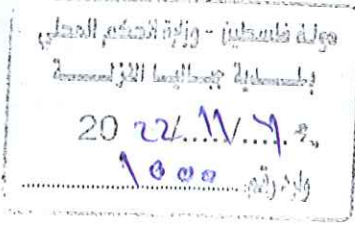 دولة فلسطين - وزارة الحكم المحلي
بلدية جباليا النزلة
20 22/11/
وارد رقم: ١٥٥٥